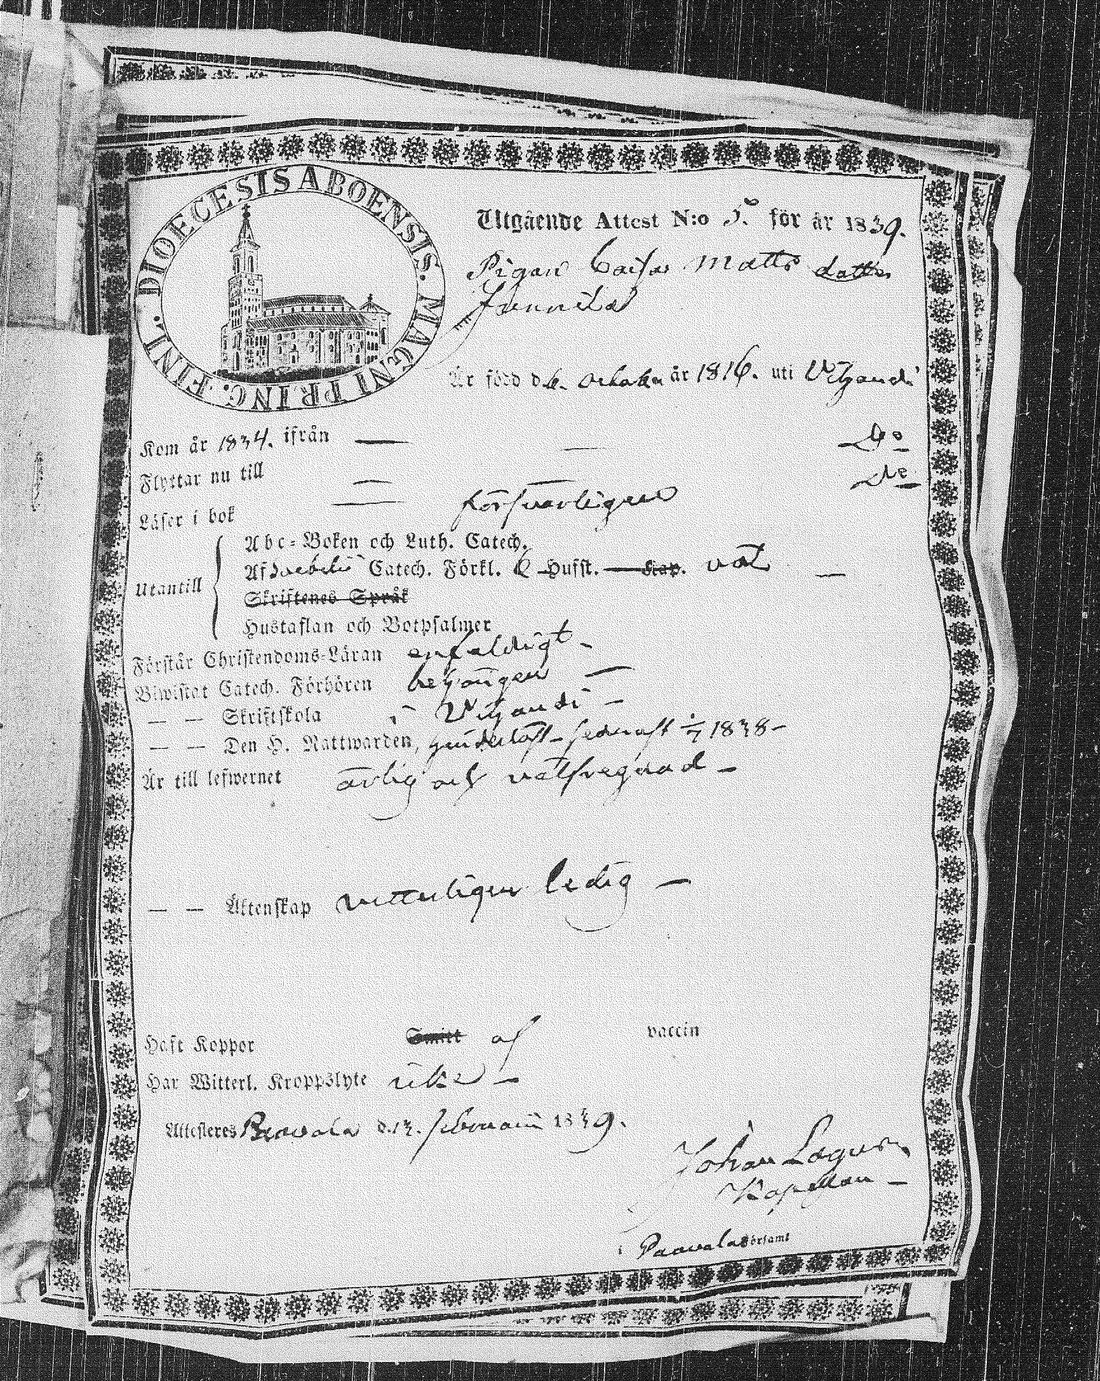 DIOECESIS ABOENSIS. MAGNI PRINC. FINL.
Utgående Attest N:o 5. för år 1839.
Pigan Caisa Matts dotter
Är född d. 6. october år 1816. uti Vitzandi
Kom år 1834. ifrån — — Do
Flyttar nu till — — Do
Läser i bok — försvarligen
Utantill
Abc-Boken och Luth. Catech.
Af Svebelii Catech. Förkl. & Husst. — Kap. väl —
Skriftenes Språk
Hustaflan och Botpsalmer
Förstår Christendoms-Läran enfaldigt –
Biwistat Catech. Förhören —
— — Skriftskola i Vitzandi –
— — Den H. Nattwarden, sednast 1/7 1838 –
Är till lefwernet ärlig och välfregdad –
— — Äktenskap vitterligen ledig —
Haft Koppor Smitt af vaccin
Har Witterl. Kroppslyte icke –
Attesteres Paavola d. 12. februarii 1839.
Johan Lagus,
Kapellan –
i Paavola